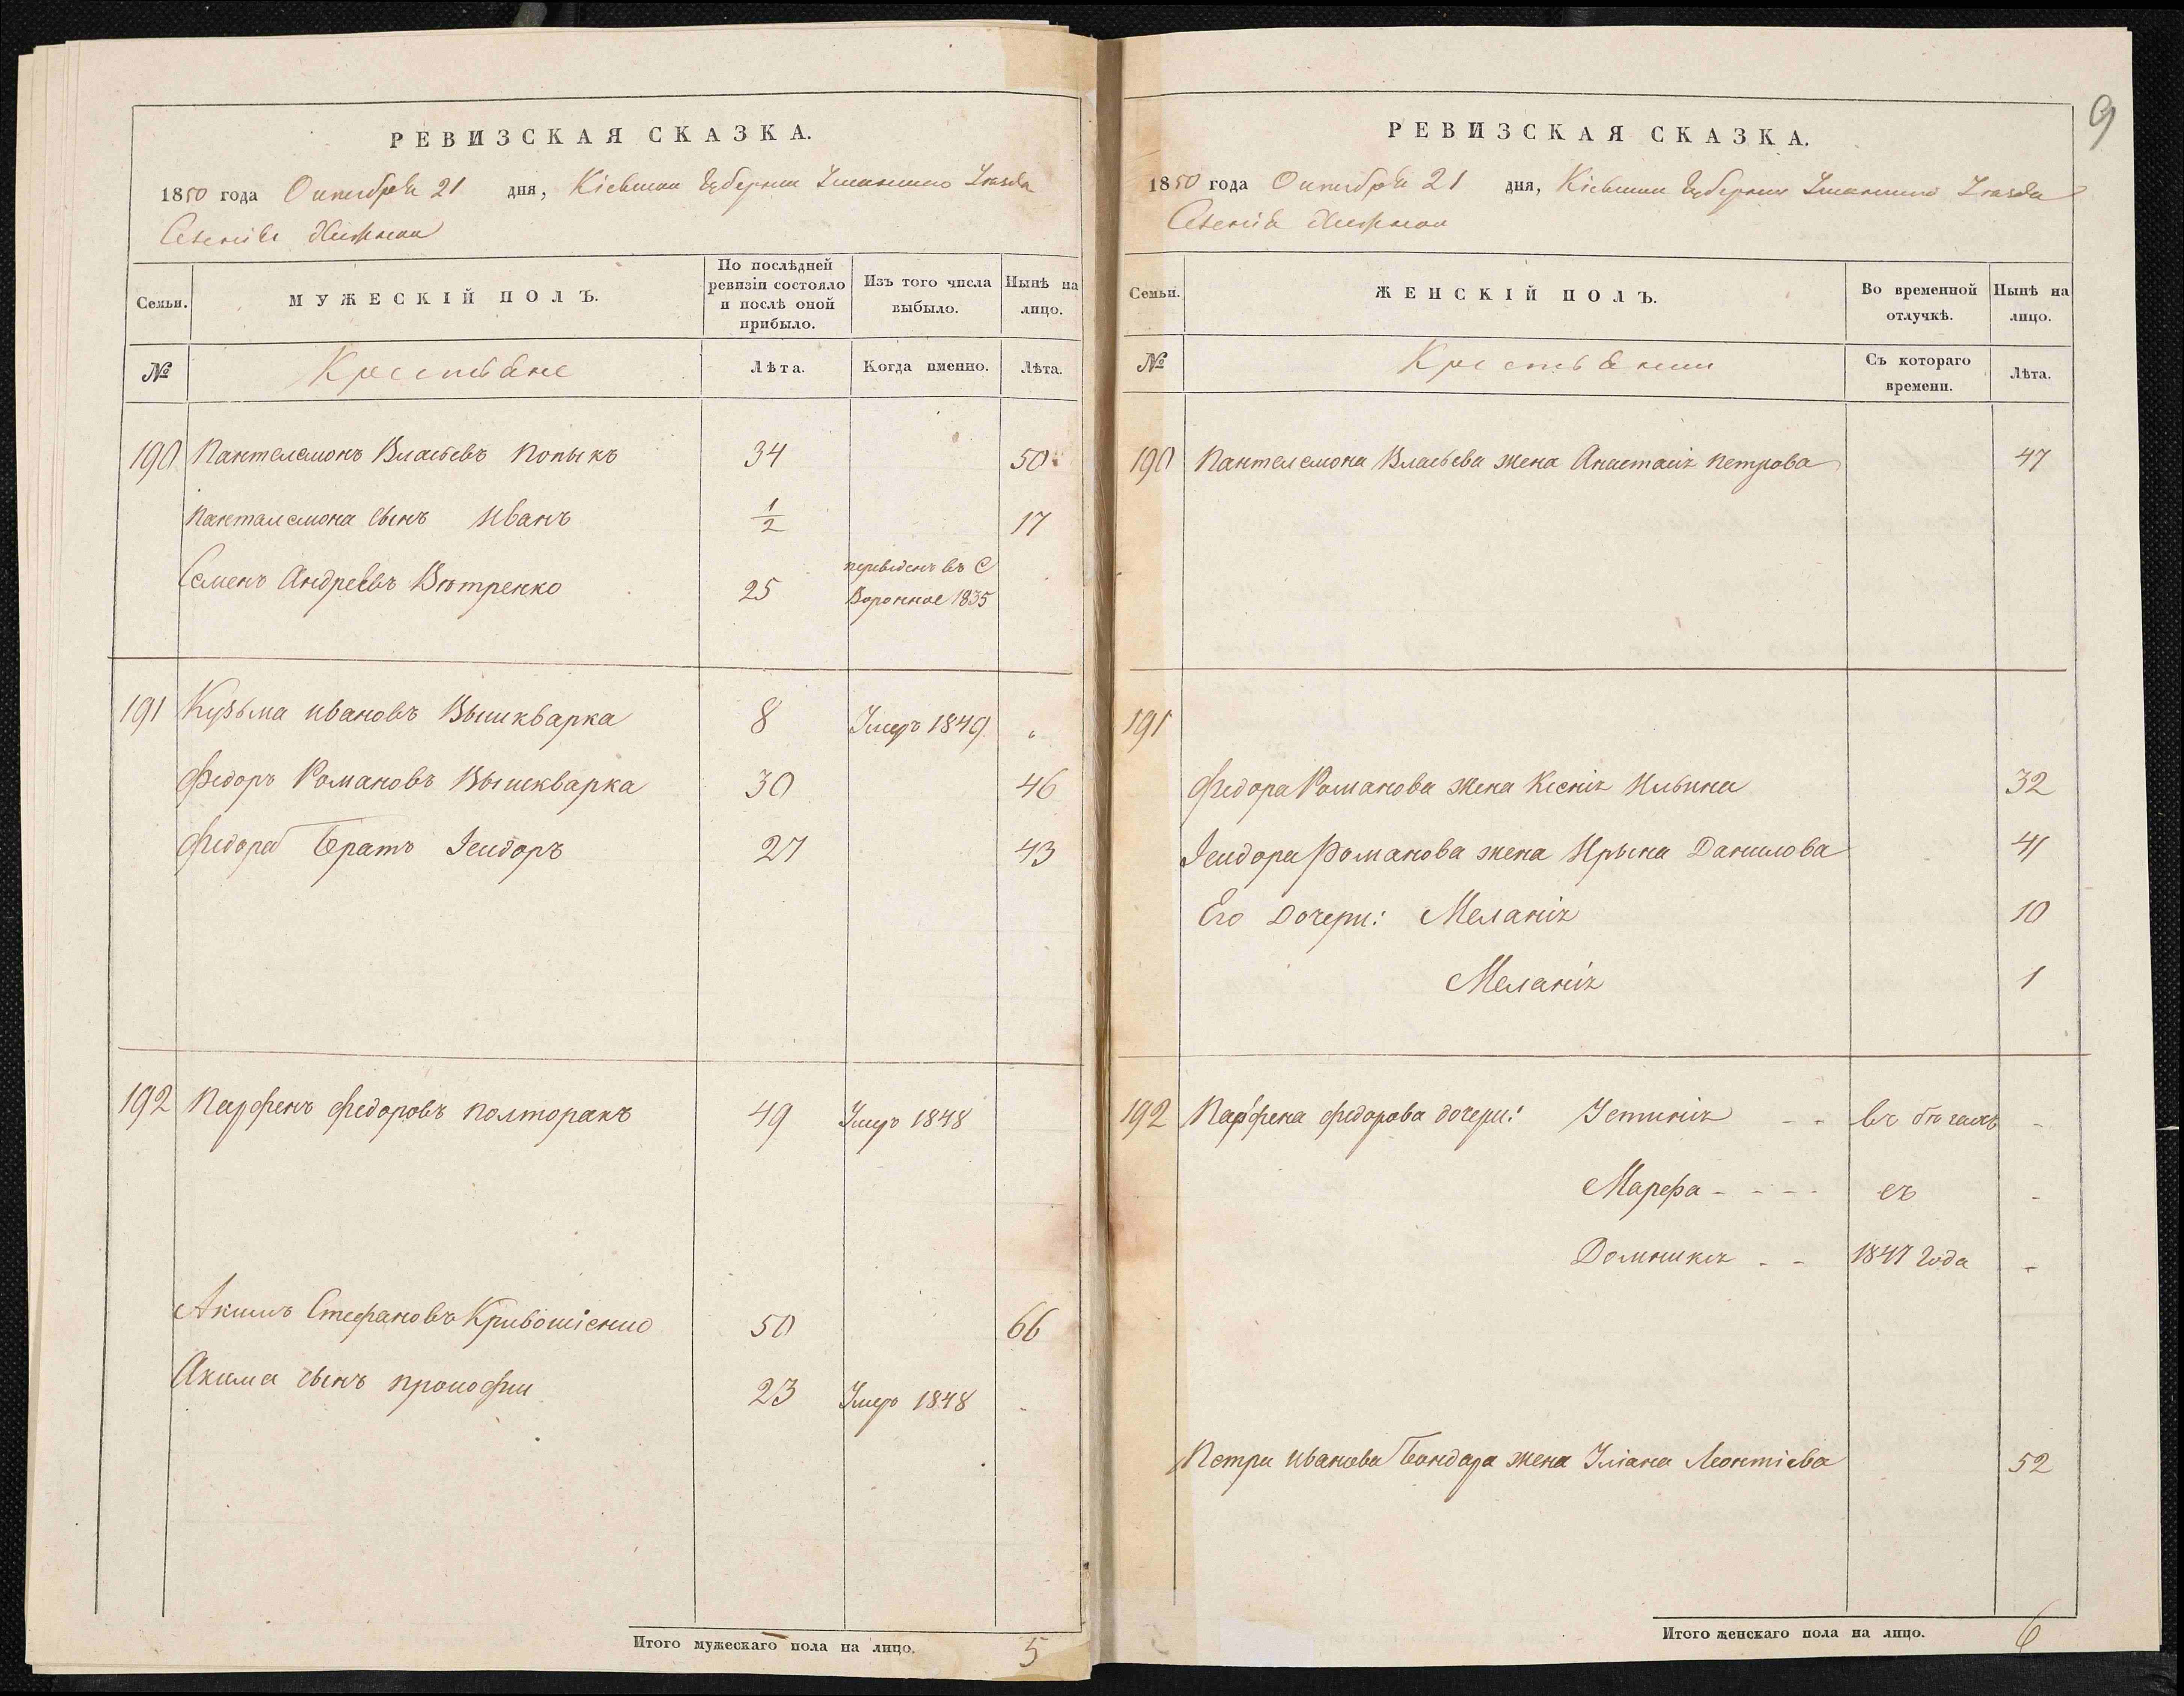 РЕВИЗСКАЯ СКАЗКА.
1850 года Октября 21 дня, Кіевской Губерніи Уманскаго Уѣзда
Семьи.
МУЖЕСКІЙ ПОЛЪ.
По послѣдней
ревизіи состояло
и послѣ оной
прибыло.
Изъ того числа
выбыло.
Нынѣ на
лицо.
№
Крестьяне
Лѣта.
Когда именно.
Лѣта.
190 Пантелемонъ Власьевъ Попыкъ 34 50
Пантелемона сынъ Иванъ 1/2 17
переведенъ въ С
Семенъ Андреевъ Вѣтренко 25 Воронное 1835
191 Кузьма Ивановъ Вышкварка 8 Умеръ 1849 "
Федоръ Романовъ Вышкварка 30 46
Федора Братъ Іеидоръ 27 43
192 Парфенъ Федоровъ Полторакъ 49 Умеръ 1848
Акимъ Стефановъ 50 66
Акима сынъ Прокофии 23 Умеръ 1848 -
Итого мужескаго пола на лицо. 5
9
РЕВИЗСКАЯ СКАЗКА.
1850 года Октября 21 дня, Кіевской Губерніи Уманскаго Уѣзда
Семьи.
ЖЕНСКІЙ ПОЛЪ.
Во временной
отлучкѣ.
Нынѣ на
лицо.
№
Крестьянки
Съ котораго
времени.
Лѣта.
190 Пантелемона Власьева жена Анастасія Петрова 47
191
Федора Романова жена Ксенія Ильина 32
Іеидора Романова жена Ирына Данилова 41
Его Дочери: Меланія 10
Меланія 1
192 Парфена Федорова дочери: Устинія - - въ бѣгахъ -
Марфа - - - - съ -
Домникія - - 1847 года -
Петра Иванова Бондара жена Уліана Леонтіева 52
Итого женскаго пола на лицо. 6